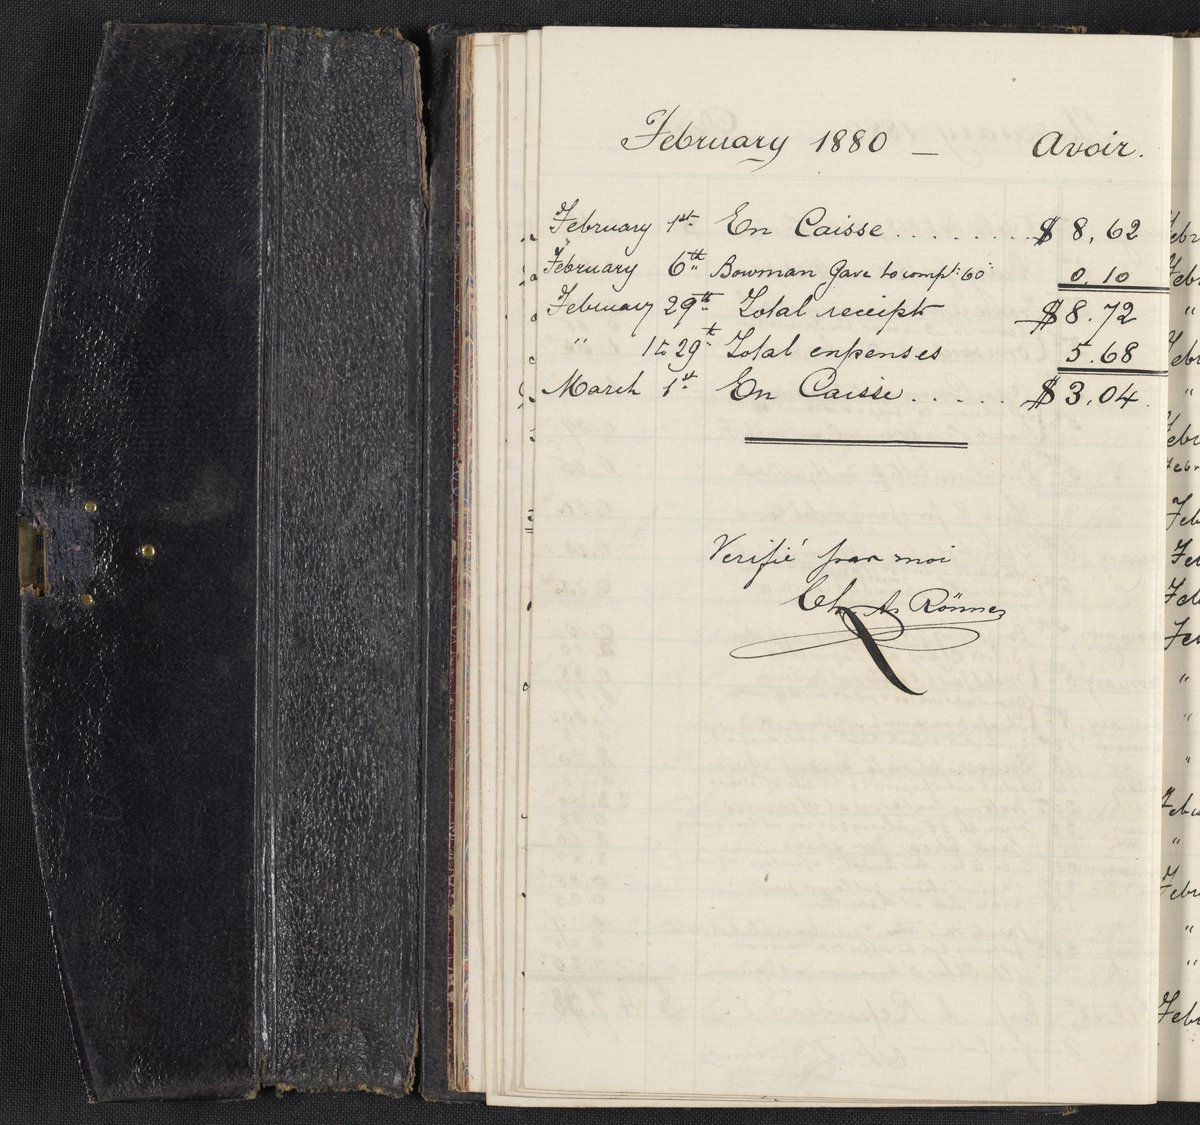 February 1880 — Avoir.
February 1st. En Caisse . . . . . . . . . $ 8,62
February 6th " Bowman Gave to comp
0.10
February 29th. Total receipt $8.72
" 1 to 29th " Total expenses 5.68
March 1st. En Caisse . . . . . . $ 3,04
Verifié par moi
Rönne